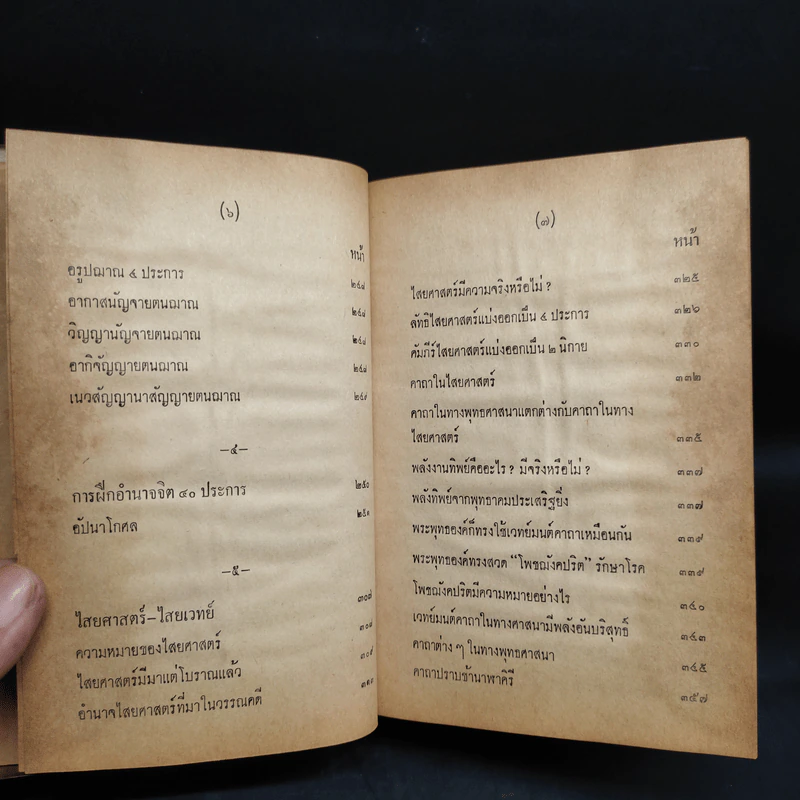 (๖)
หน้า
อรูปฌาณ ๔ ประการ ๒๔๘
อากาสนัญจายตนฌาณ ๒๔๘
วิญญานัญจายตนฌาณ ๒๔๘
อากิจัญญายตนฌาณ ๒๔๘
เนวสัญญานาสัญญายตนฌาณ ๒๔๙
—๔—
การฝึกอำนาจจิต ๔๐ ประการ ๒๕๐
อัปนาโกศล ๒๕๑
—๕—
ไสยศาสตร์–ไสยเวทย์ ๓๐๗
ความหมายของไสยศาสตร์ ๓๐๘
ไสยศาสตร์มีมาแต่โบราณแล้ว ๓๐๙
อำนาจไสยศาสตร์ที่มาในวรรณคดี ๓๑๐
(๗)
หน้า
ไสยศาสตร์มีความจริงหรือไม่ ? ๓๒๕
ลัทธิไสยศาสตร์แบ่งออกเป็น ๔ ประการ ๓๒๖
คัมภีร์ไสยศาสตร์แบ่งออกเป็น ๒ นิกาย ๓๓๐
คาถาในไสยศาสตร์ ๓๓๒
คาถาในทางพุทธศาสนาแตกต่างกับคาถาในทาง
ไสยศาสตร์ ๓๓๕
พลังงานทิพย์คืออะไร ? มีจริงหรือไม่ ? ๓๓๗
พลังทิพย์จากพุทธาคมประเสริฐยิ่ง ๓๓๗
พระพุทธองค์ก็ทรงใช้เวทย์มนต์คาถาเหมือนกัน ๓๓๙
พระพุทธองค์ทรงสวด “โพชฌังคปริต” รักษาโรค ๓๓๙
โพชฌังคปริตมีความหมายอย่างไร ๓๔๐
เวทย์มนต์คาถาในทางศาสนามีพลังอันบริสุทธ์ ๓๔๓
คาถาต่าง ๆ ในทางพุทธศาสนา ๓๔๕
คาถาปราบช้านาฬาคิรี ๓๕๗